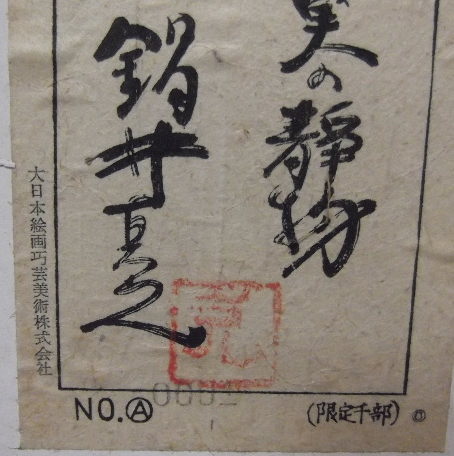 実の静物
鍋井克之
大日本絵画巧芸美術株式会社
NO.Ⓐ
(限定千部)